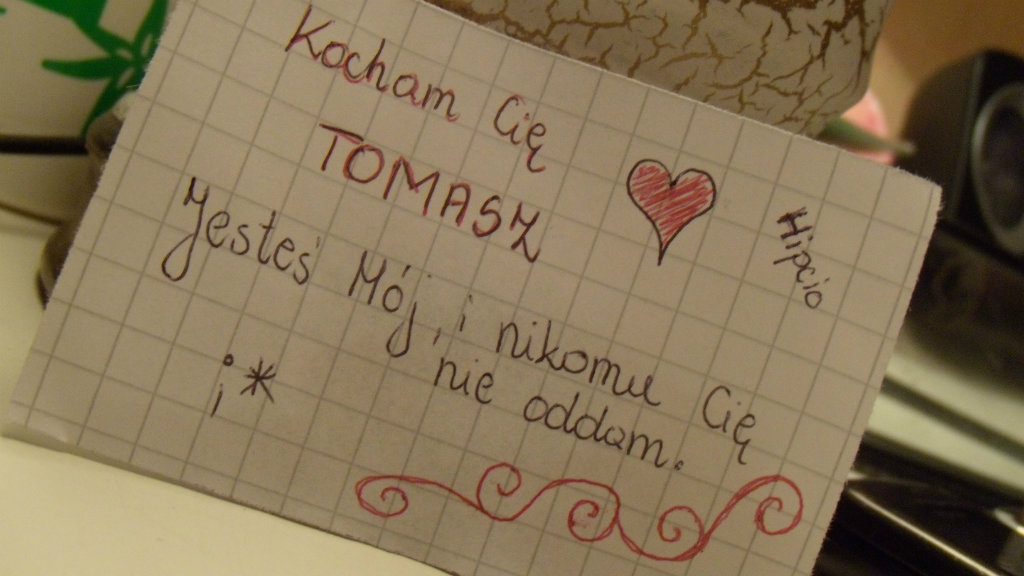 Kocham Cię
TOMASZ
Jesteś Mój, i nikomu Cię
nie oddam.
;*
Hipcio